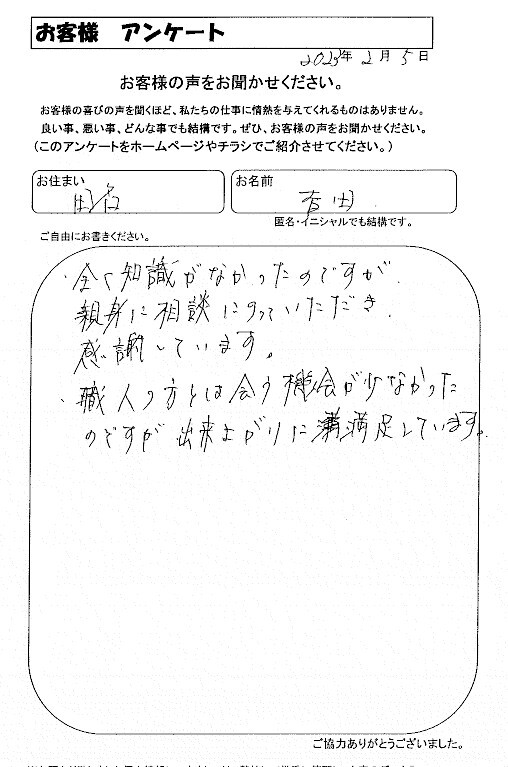 お客様 アンケート
2023年 2月 5日
お客様の声をお聞かせください。
お客様の喜びの声を聞くほど、私たちの仕事に情熱を与えてくれるものはありません。
良い事、悪い事、どんな事でも結構です。ぜひ、お客様の声をお聞かせください。
(このアンケートをホームページやチラシでご紹介させてください。)
お住まい
お名前
匿名・イニシャルでも結構です。
ご自由にお書きください。
・全く知識がなかったのですが、
親身に相談にのっていただき、
感謝しています。
・職人の方とは会う機会が少なかった
のですが出来上がりに満足しています。
ご協力ありがとうございました。